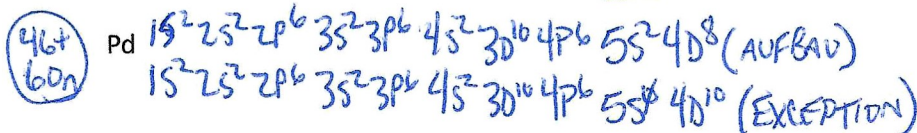 46+ Pd 1S² 2S² 2P⁶ 3S² 3P⁶ 4S² 3D¹⁰ 4P⁶ 5S² 4D⁸ (AUFBAU)
60n 1S² 2S² 2P⁶ 3S² 3P⁶ 4S² 3D¹⁰ 4P⁶ 5S 4D¹⁰ (EXCEPTION)